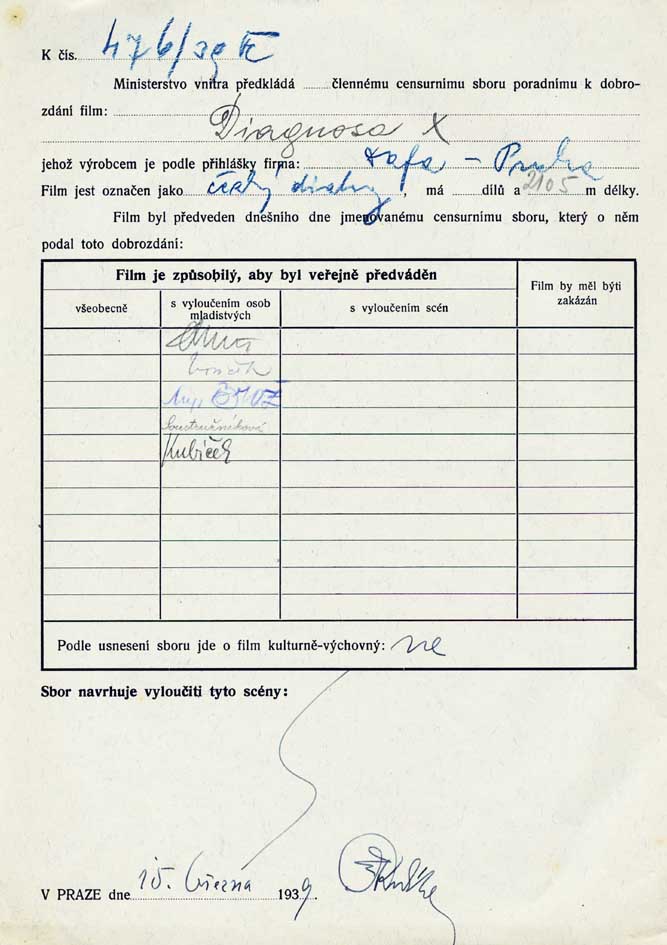 K čís. 476/39
Ministerstvo vnitra předkládá člennému censurnímu sboru poradnímu k dobro-
zdání film:
Diagnosa X
jehož výrobcem je podle přihlášky firma: Dafa - Praha
Film jest označen jako český, má dílů a 2105 m délky.
Film byl předveden dnešního dne jmenovanému censurnímu sboru, který o něm
podal toto dobrozdání:
Film je způsobilý, aby byl veřejně předváděn
Film by měl býti
zakázán
všeobecně
s vyloučením osob
mladistvých
s vyloučením scén
Kubíček
Podle usnesení sboru jde o film kulturně-výchovný: ne
Sbor navrhuje vyloučiti tyto scény:
V PRAZE dne 15. března 1939.